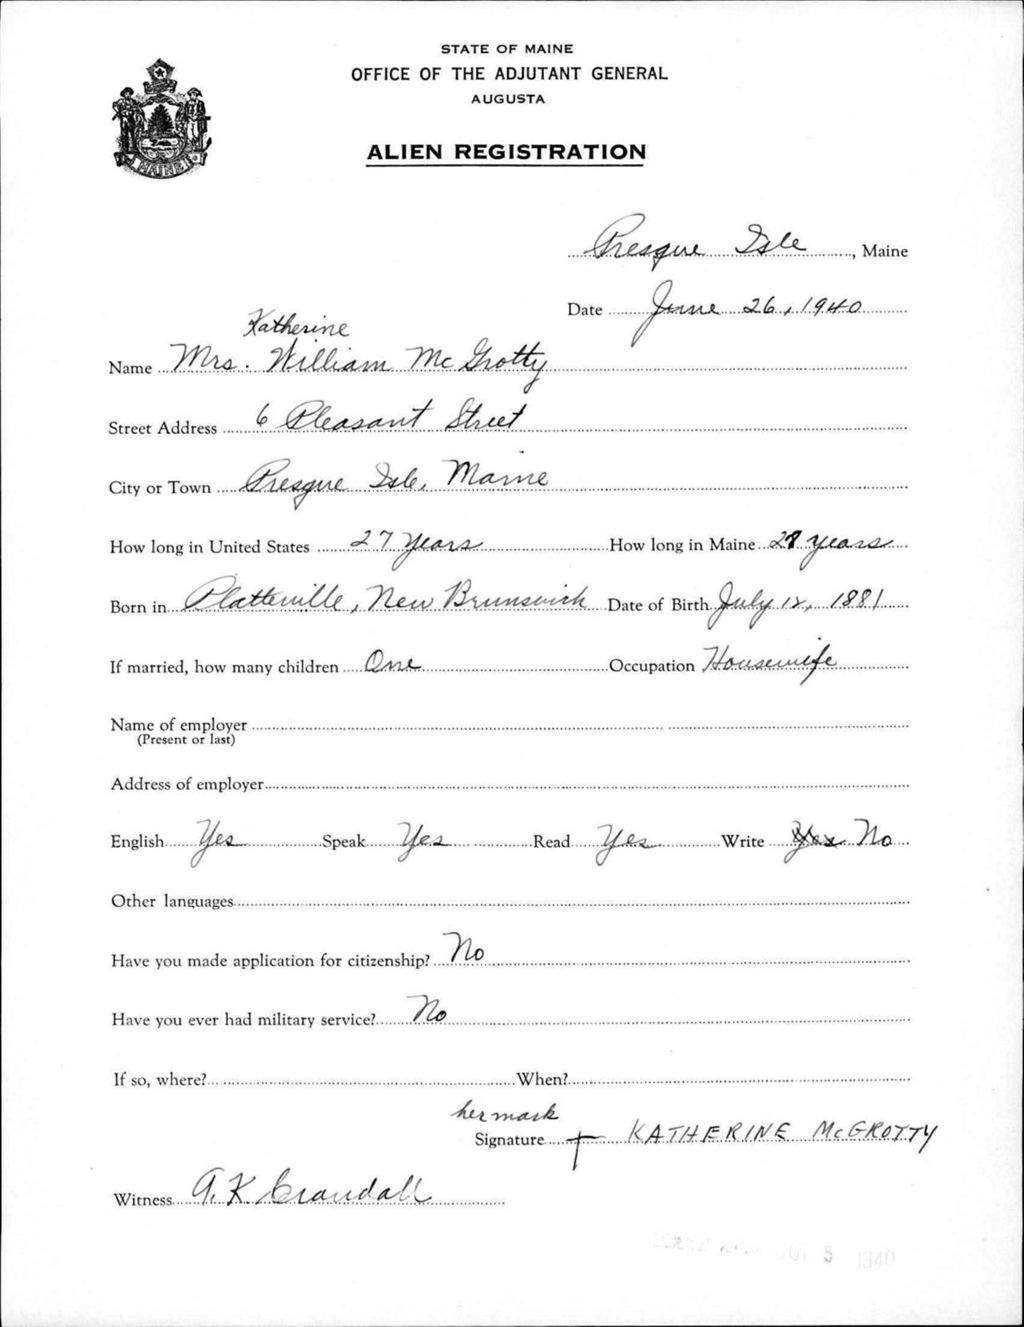 STATE OF MAINE
OFFICE OF THE ADJUTANT GENERAL
AUGUSTA
MAINE
ALIEN REGISTRATION
Presque Isle, Maine
Date June 26, 1940
Katherine
Name Mrs. William McGrotty
Street Address 6 Pleasant Street
City or Town Presque Isle, Maine
How long in United States 27 years How long in Maine 27 years
Born in Platteville, New Brunswick Date of Birth July 12, 1881
If married, how many children One Occupation Housewife
Name of employer
(Present or last)
Address of employer
English Yes Speak Yes Read Yes Write Yes No
Other languages
Have you made application for citizenship? No
Have you ever had military service? No
If so, where? When?
her mark
Signature + KATHERINE McGROTTY
Witness A. K Crandall
5 1940